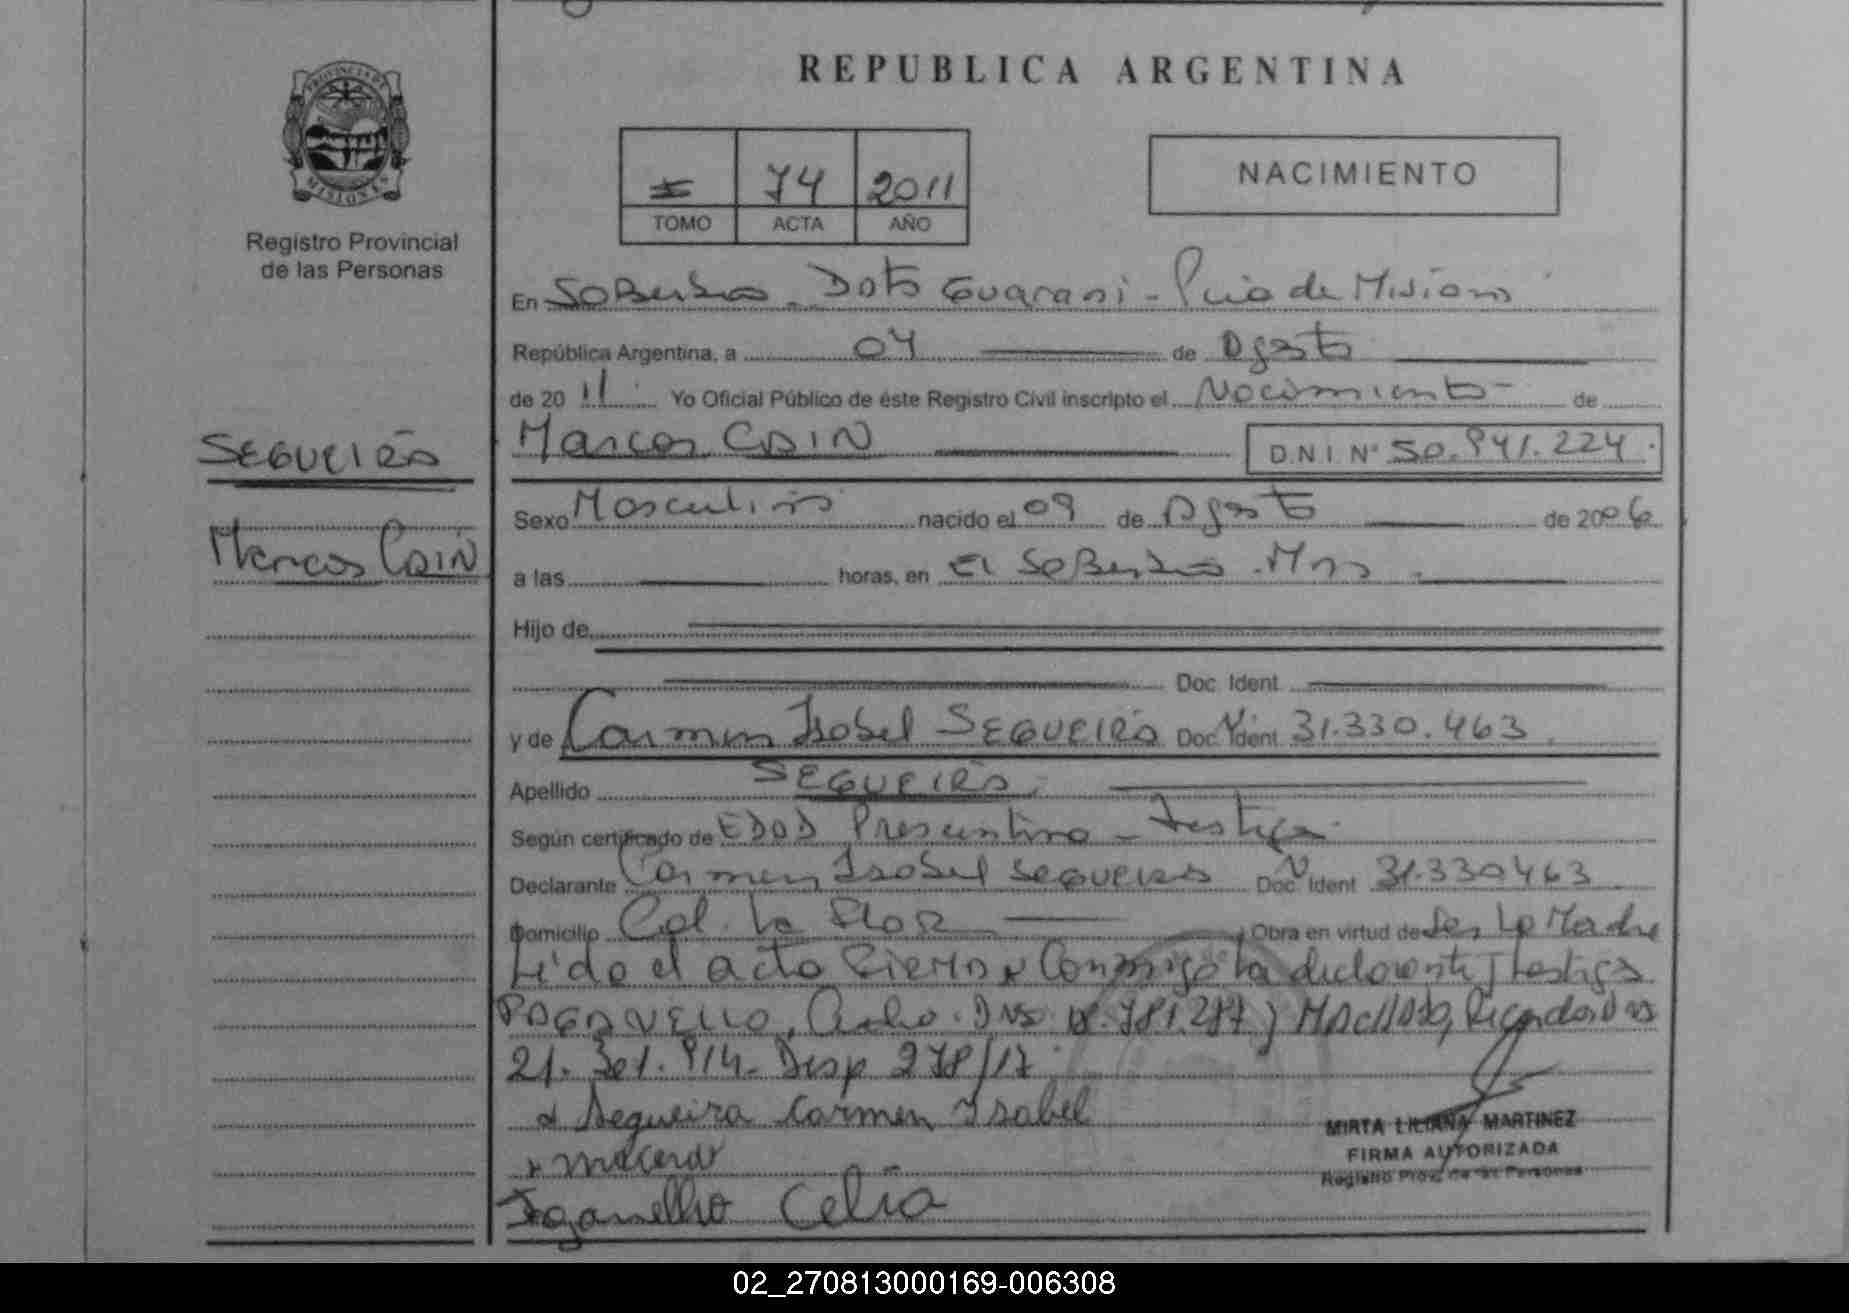 REPUBLICA ARGENTINA
PROVINCIA DE
MISIONES
Registro Provincial
de las Personas
I 74 2011
TOMO ACTA AÑO
NACIMIENTO
En Soberbio - Dpto Guarani - Pcia de Misiones
República Argentina, a 04 de Agosto
de 20 11 Yo Oficial Público de éste Registro Civil inscripto el Nacimiento de
Marcos CAIN D.N.I. Nº 50.941.224.
SEGUEIRA
Marcos CAIN
Sexo Masculino nacido el 09 de Agosto de 2006
a las horas, en El Soberbio Mnes
Hijo de
Doc. Ident.
y de Carmen Isabel SEGUEIRA Doc. Ident. 31.330.463
Apellido SEGUEIRA
Según certificado de EDAD Presuntiva - Testigos
Declarante Carmen Isabel Segueira Doc. Ident. 31.330463
Domicilio Col. La Flor Obra en virtud de Ser la Madre
Leida el acta Firman Conmigo la declarante y testigos
Celia DNI 781.287 y Machado, Ricardo DNI
21.301.914 - Disp 278/17
x Segueira Carmen Isabel
Celia
MIRTA LILIANA MARTINEZ
FIRMA AUTORIZADA
Registro Prov. de las Personas
02_270813000169-006308